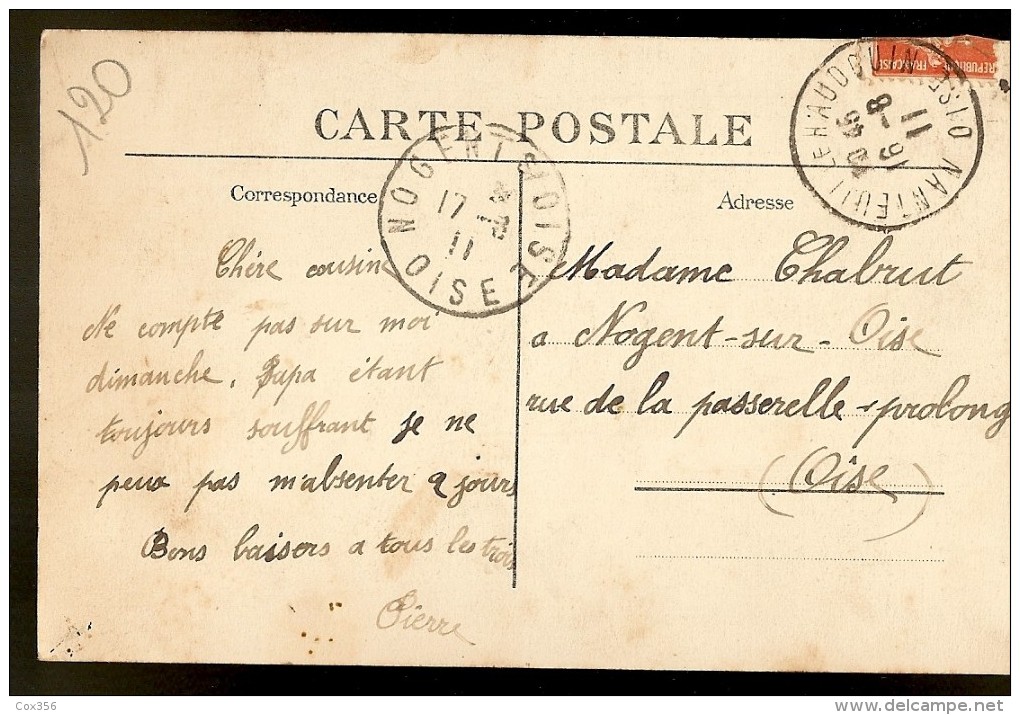 120
REPUBLIQUE FRANÇAISE
CARTE POSTALE
Correspondance
Adresse
NANTEUIL LE HAUDOUIN OISE
16 -8
11
NOGENT S/ OISE
17
11
OISE
Chére cousine
Ne compte pas sur moi
dimanche, Papa étant
toujours souffrant je ne
peux pas m'absenter 2 jours
Bons baisers a tous les trois
Pierre
Madame Chabrut
a Nogent-sur-Oise
rue de la passerelle-prolong
(Oise)
Cox356
www.delcampe.net